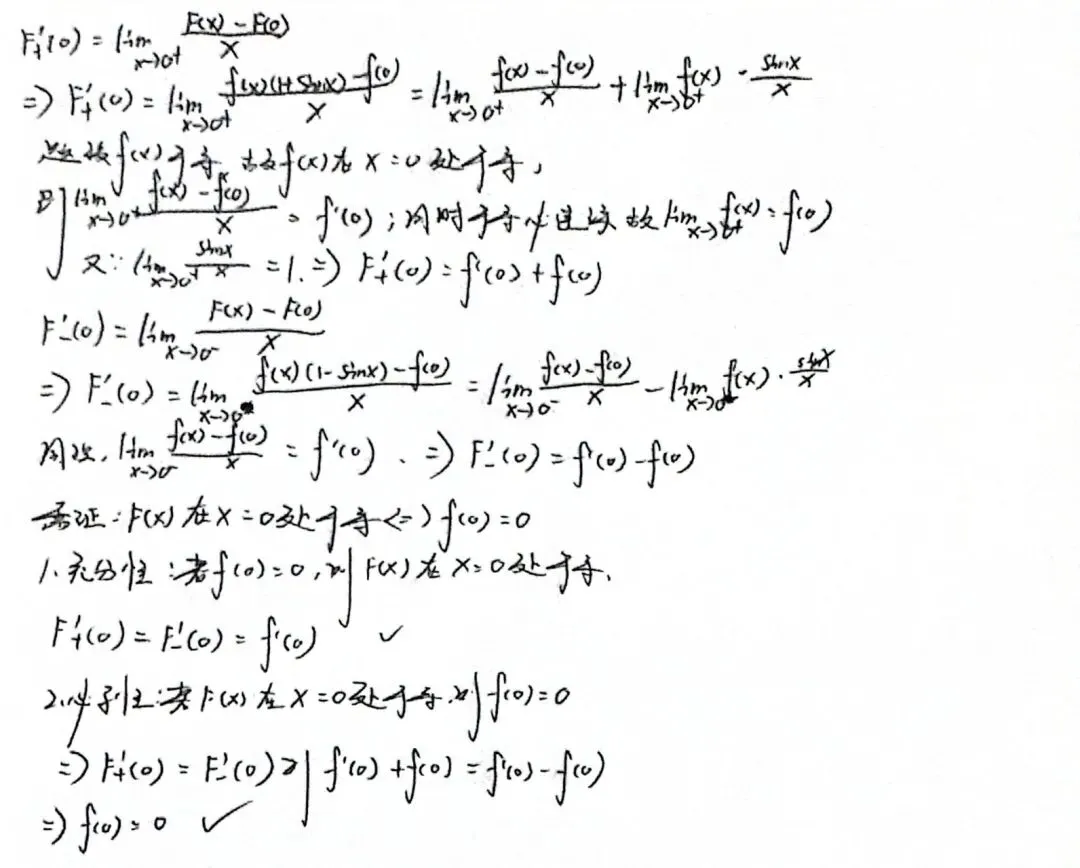 F'₊(0) = lim_{x→0⁺} (F(x) - F(0))/x
=> F'₊(0) = lim_{x→0⁺} (f(x)(1+sinx) - f(0))/x = lim_{x→0⁺} (f(x) - f(0))/x + lim_{x→0⁺} f(x) · sinx/x
f(x)可导, 故f(x)在x=0处可导,
即 lim_{x→0⁺} (f(x) - f(0))/x = f'(0); 同时可导必连续 故 lim_{x→0⁺} f(x) = f(0)
又∵ lim_{x→0⁺} sinx/x = 1. => F'₊(0) = f'(0) + f(0)
F'₋(0) = lim_{x→0⁻} (F(x) - F(0))/x
=> F'₋(0) = lim_{x→0⁻} (f(x)(1-sinx) - f(0))/x = lim_{x→0⁻} (f(x) - f(0))/x - lim_{x→0⁻} f(x) · sinx/x
同理, lim_{x→0⁻} (f(x) - f(0))/x = f'(0). => F'₋(0) = f'(0) - f(0)
需证: F(x)在x=0处可导 <=> f(0)=0
1. 充分性: 若f(0)=0, 则F(x)在x=0处可导.
F'₊(0) = F'₋(0) = f'(0) ✓
2. 必要性: 若F(x)在x=0处可导. 则f(0)=0
=> F'₊(0) = F'₋(0) 则 f'(0) + f(0) = f'(0) - f(0)
=> f(0) = 0 ✓